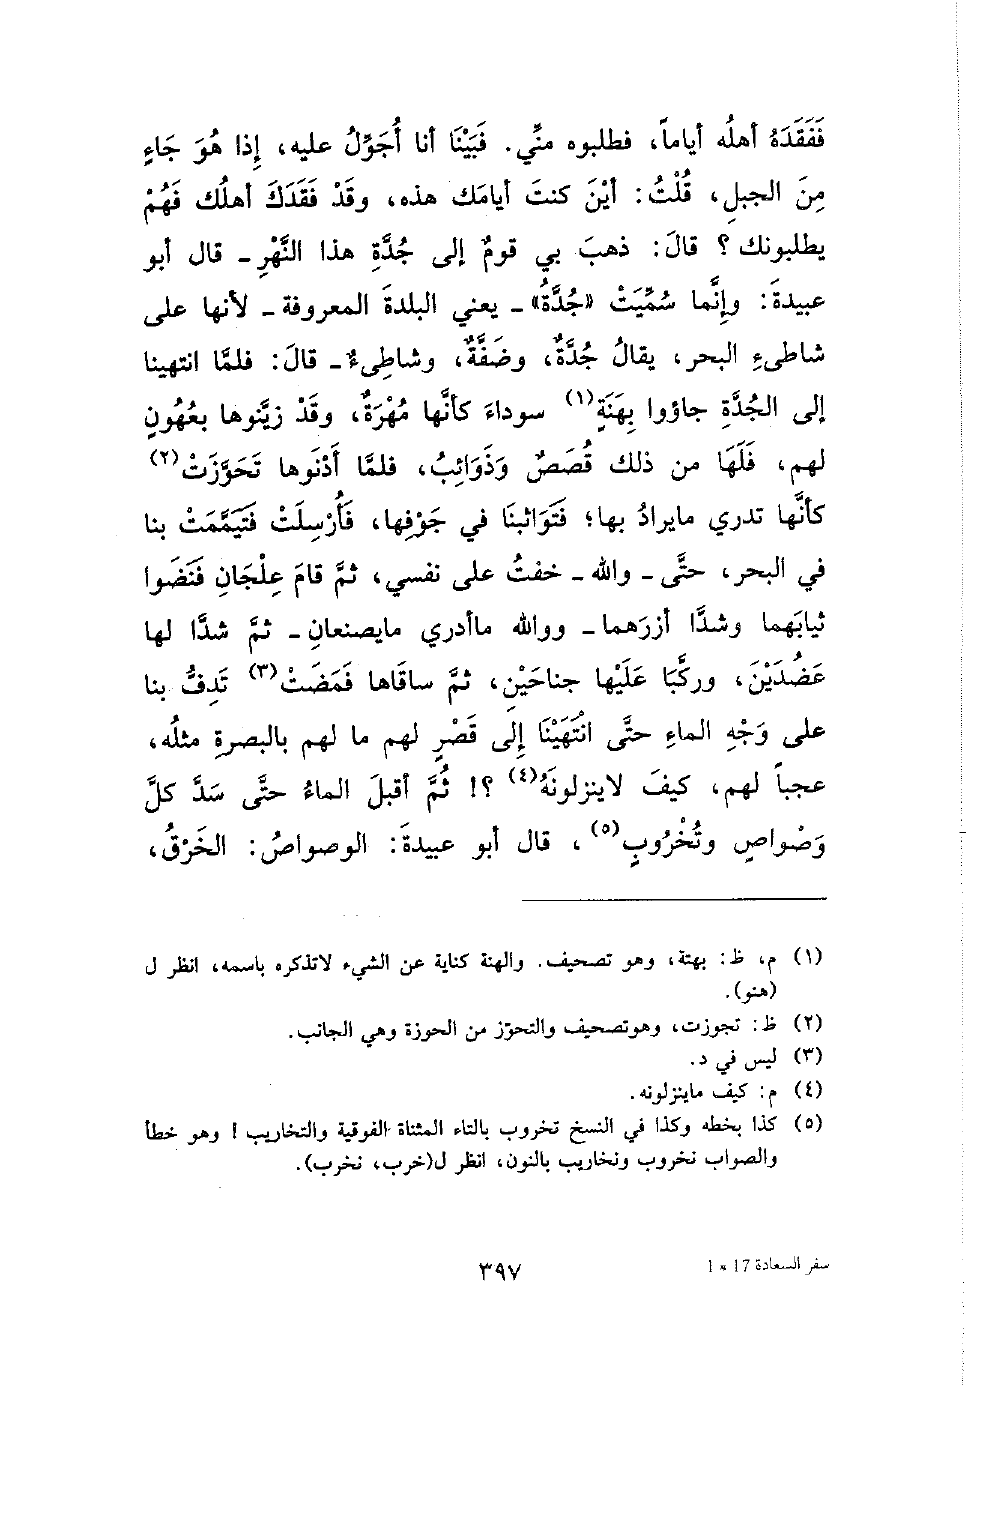 فَفَقَدَهُ أهلُه أياماً، فطلبوه منِّي. فَبَيْنَا أنا أُجَوِّلُ عليه، إِذا هُوَ جَاءٍ
مِنَ الجبلِ، قُلْتُ: أيْنَ كنتَ أيامَك هذه، وقَدْ فَقَدَكَ أهلُك فَهُمْ
يطلبونك ؟ قالَ: ذهبَ بي قومٌ إلى جُدَّةِ هذا النَّهْرِ ـ قال أبو
عبيدةَ: وإِنَّما سُمِّيَتْ «جُدَّةُ» ـ يعني البلدةَ المعروفة ـ لأنها على
شاطىءِ البحر، يقالُ جُدَّةٌ، وضَفَّةٌ، وشاطِىءٌ ـ قالَ: فلمَّا انتهينا
إلى الجُدَّةِ جاؤوا بِهَنَةٍ(١) سوداءَ كأنَّها مُهْرَةٌ، وقَدْ زيَّنوها بعُهُونٍ
لهم، فَلَهَا من ذلك قُصَصٌ وَذَوَائِبُ، فلمَّا أَدْنَوها تَحَوَّزَتْ(٢)
كأنَّها تدري مايرادُ بها؛ فتَوَاثبنَا في جَوْفِها، فَأُرْسِلَتْ فَتَيَمَّمَتْ بنا
في البحر، حتَّى ـ والله ـ خفتُ على نفسي، ثمَّ قامَ عِلْجَانِ فَنَضَوا
ثيابَهما وشدَّا أزرَهما ـ ووالله ماأدري مايصنعانِ ـ ثمَّ شدَّا لها
عَضُدَيْنَ، وركَّبَا عَلَيْها جناحَيْنِ، ثمَّ ساقَاها فَمَضَتْ(٣) تَدِفُّ بنا
على وَجْهِ الماءِ حتَّى انْتَهَيْنَا إِلى قَصْرٍ لهم ما لهم بالبصرةِ مثلُه،
عجباً لهم، كيفَ لاينزلونَهُ(٤) ؟! ثُمَّ أقبلَ الماءُ حتَّى سَدَّ كلَّ
وَصْواصٍ وتُخْرُوبٍ(٥)، قال أبو عبيدةَ: الوصواصُ: الخَرْقُ،
(١) م، ظ: بهتة، وهو تصحيف. والهنة كناية عن الشيء لاتذكره باسمه، انظر ل
(هنو).
(٢) ظ: تجوزت، وهوتصحيف والتحوّز من الحوزة وهي الجانب.
(٣) ليس في د.
(٤) م: كيف ماينزلونه.
(٥) كذا بخطه وكذا في النسخ تخروب بالتاء المثناة الفوقية والتخاريب ! وهو خطأ
والصواب نخروب ونخاريب بالنون، انظر ل(خرب، نخرب).
سفر السعادة 17 * 1
٣٩٧